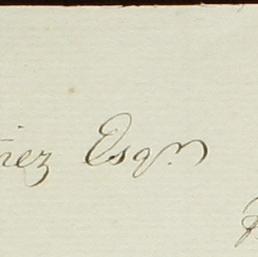 ñez Esqr.